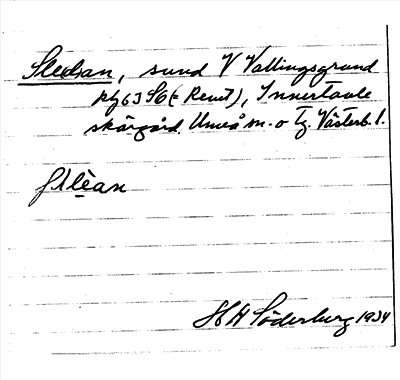 Sledan, sund V Vallingsgrund
kbl 63 SO (= Remt), Innertavle
skärgård, Umeå m. o tg. Västerb. l.
slèan
H H Söderburg 1934